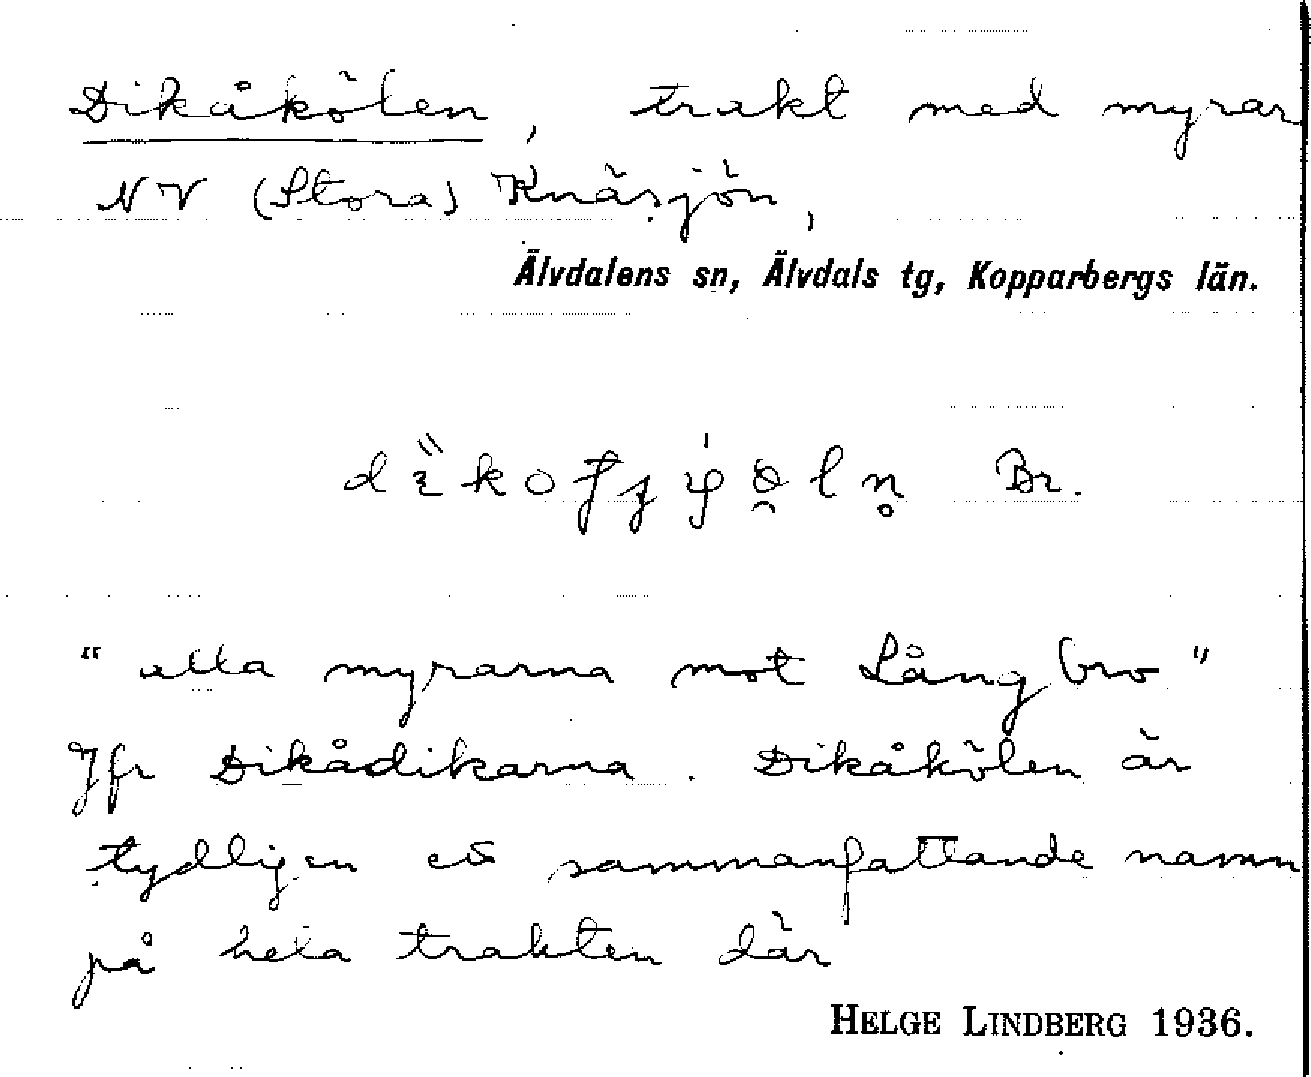 Dikåkölen, trakt med myrar
NV (Stora) Knäsjön,
Älvdalens sn, Älvdals tg, Kopparbergs län.
Br.
"alla myrarna mot Långbro"
Jfr Dikådikarna. Dikåkölen är
tydligen ett sammanfattande namn
på hela trakten där
HELGE LINDBERG 1936.